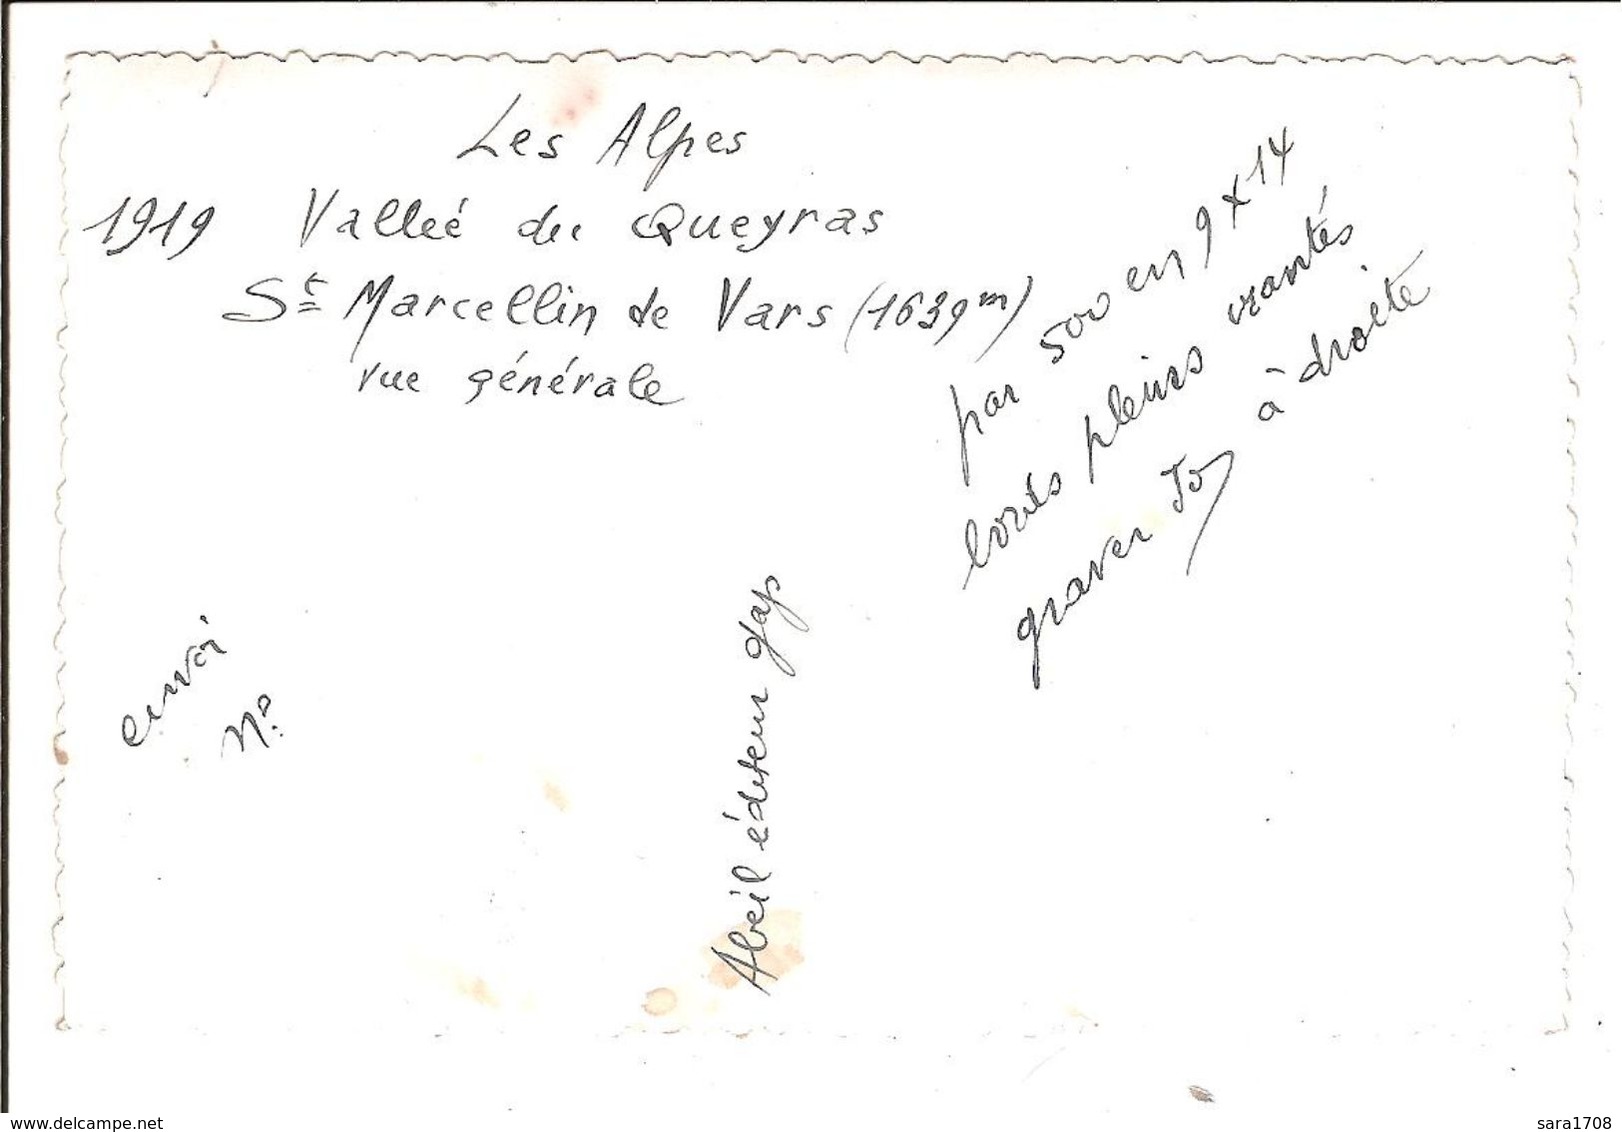 Les Alpes
1919 Valleé du Queyras
St Marcellin de Vars (1639m)
vue générale
par 500 en 9x14
bords pleins crantés
graver à droite
envoi
No
Abeil éditeur gap
www.delcampe.net
sara1708